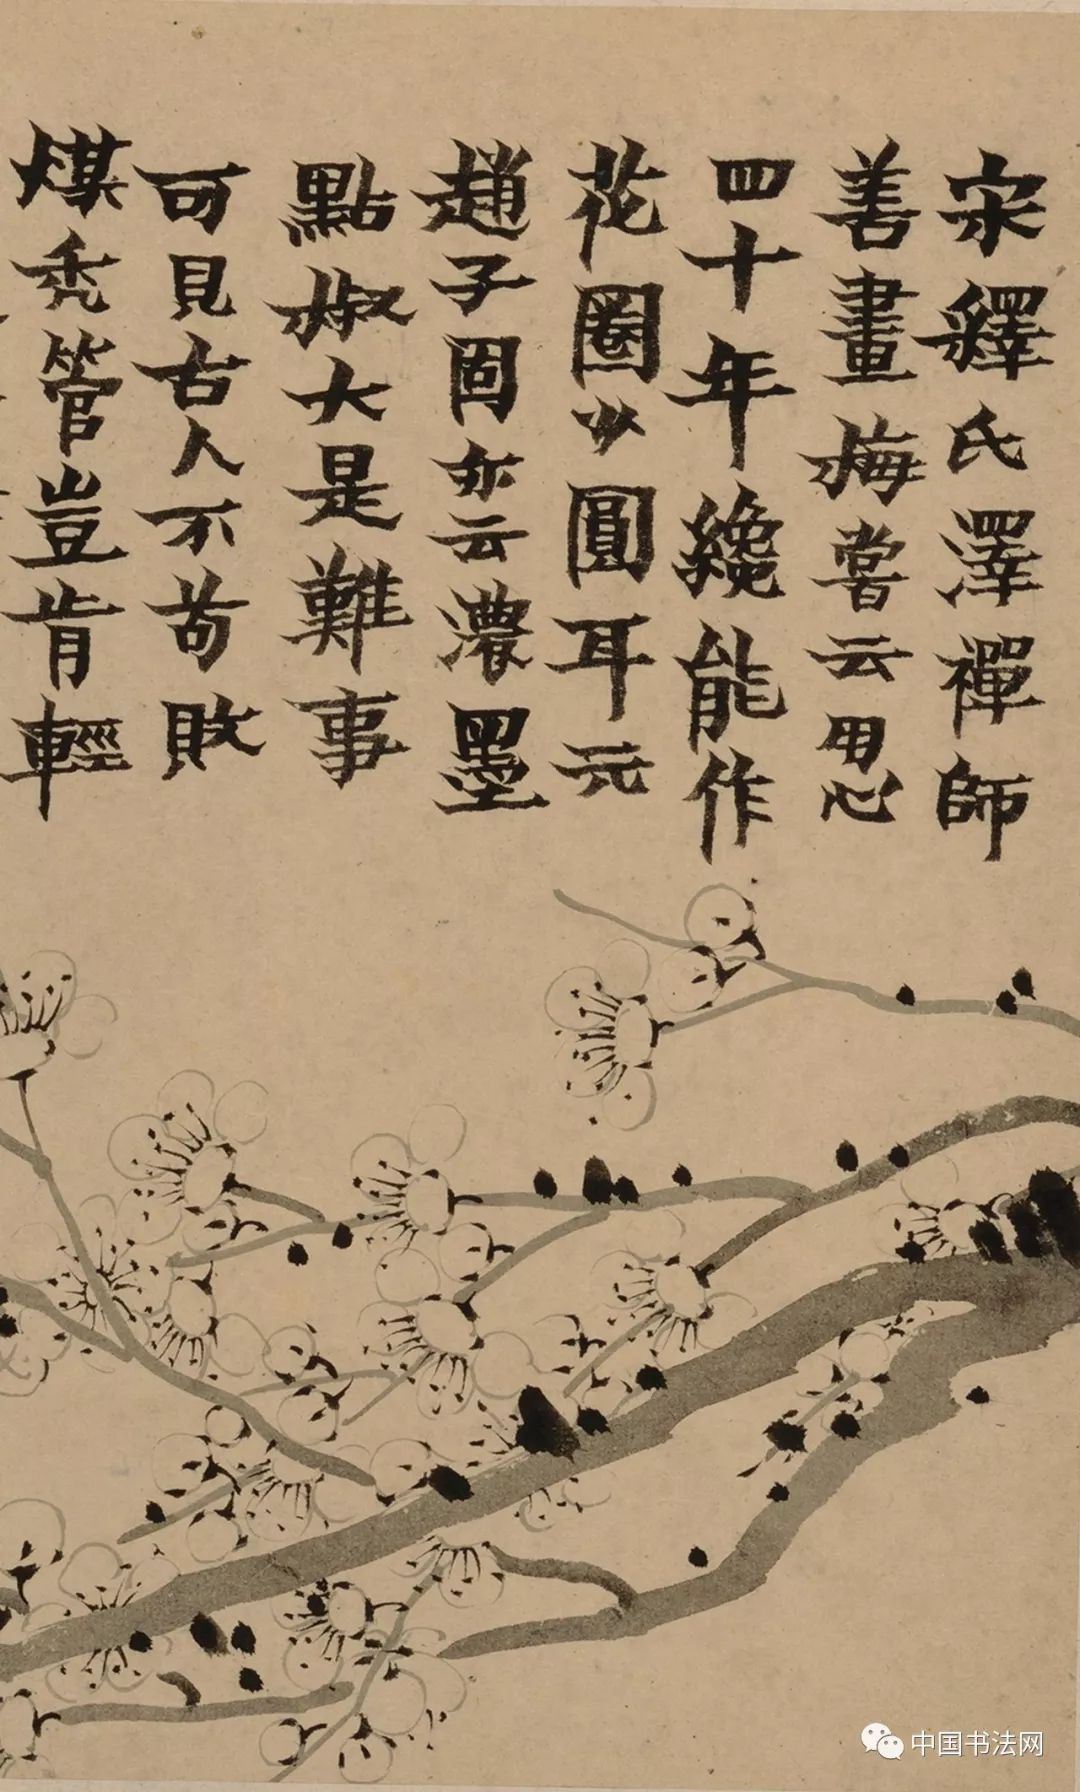 宋釋氏澤禪師
善畫梅嘗云用心
四十年纔能作
花圈少圓耳元
趙子固亦云濃墨
點椒大是難事
可見古人不苟敗
煤禿管豈肯輕
中国书法网